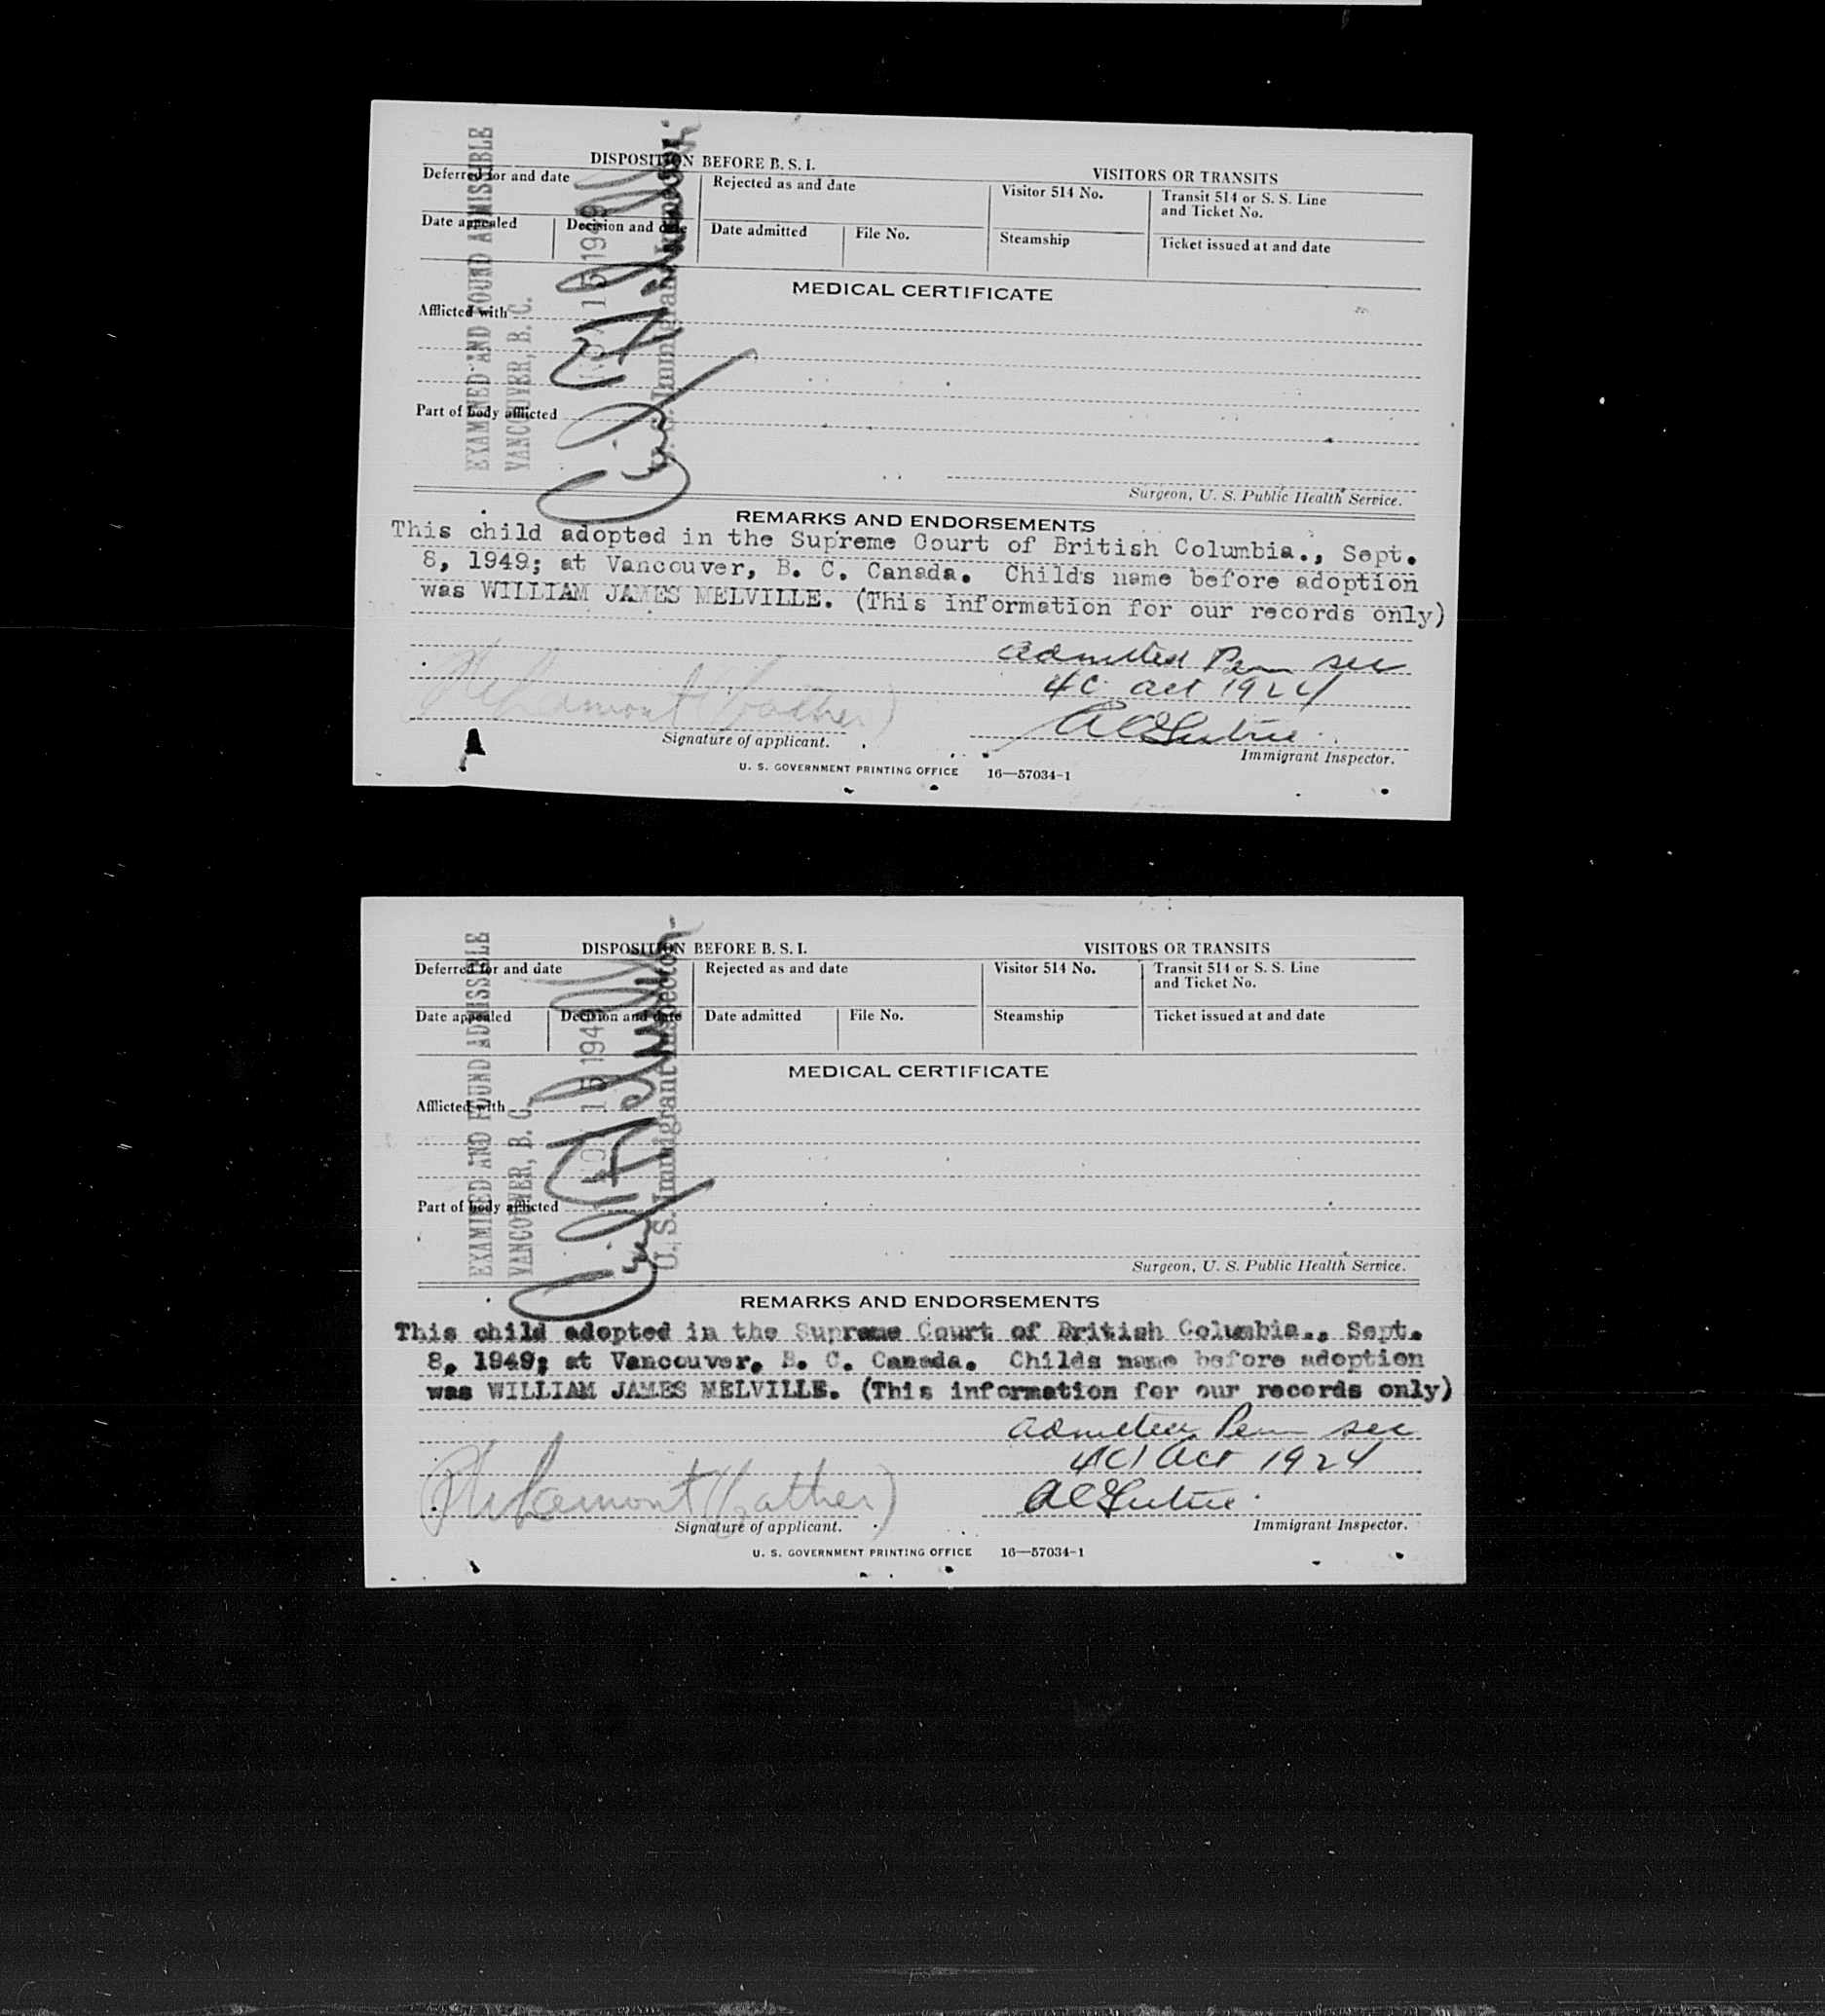 DISPOSITION BEFORE B. S. I.
VISITORS OR TRANSITS
Deferred for and date
Rejected as and date
Visitor 514 No.
Transit 514 or S. S. Line
and Ticket No.
Date appealed
Decision and date
Date admitted
File No.
Steamship
Ticket issued at and date
MEDICAL CERTIFICATE
Afflicted with
Part of body afflicted
Surgeon, U. S. Public Health Service.
EXAMINED AND FOUND ADMISSIBLE
VANCOUVER, B. C.
U. S. Immigrant Inspector.
REMARKS AND ENDORSEMENTS
This child adopted in the Supreme Court of British Columbia., Sept.
8, 1949; at Vancouver, B. C. Canada. Childs name before adoption
was WILLIAM JAMES MELVILLE. (This information for our records only)
admitted Perm sec
4C act 1924
Lamont (father)
Signature of applicant.
Immigrant Inspector.
U. S. GOVERNMENT PRINTING OFFICE 16—57034-1
DISPOSITION BEFORE B. S. I.
VISITORS OR TRANSITS
Deferred for and date
Rejected as and date
Visitor 514 No.
Transit 514 or S. S. Line
and Ticket No.
Date appealed
Decision and date
Date admitted
File No.
Steamship
Ticket issued at and date
MEDICAL CERTIFICATE
Afflicted with
Part of body afflicted
Surgeon, U. S. Public Health Service.
EXAMINED AND FOUND ADMISSIBLE
VANCOUVER, B. C.
15 1949
U. S. Immigrant Inspector
REMARKS AND ENDORSEMENTS
This child adopted in the Supreme Court of British Columbia., Sept.
8, 1949; at Vancouver, B. C. Canada. Childs name before adoption
was WILLIAM JAMES MELVILLE. (This information for our records only)
admitted Perm sec
4(c) act 1924
Lamont (father)
Signature of applicant.
Immigrant Inspector.
U. S. GOVERNMENT PRINTING OFFICE 16—57034-1